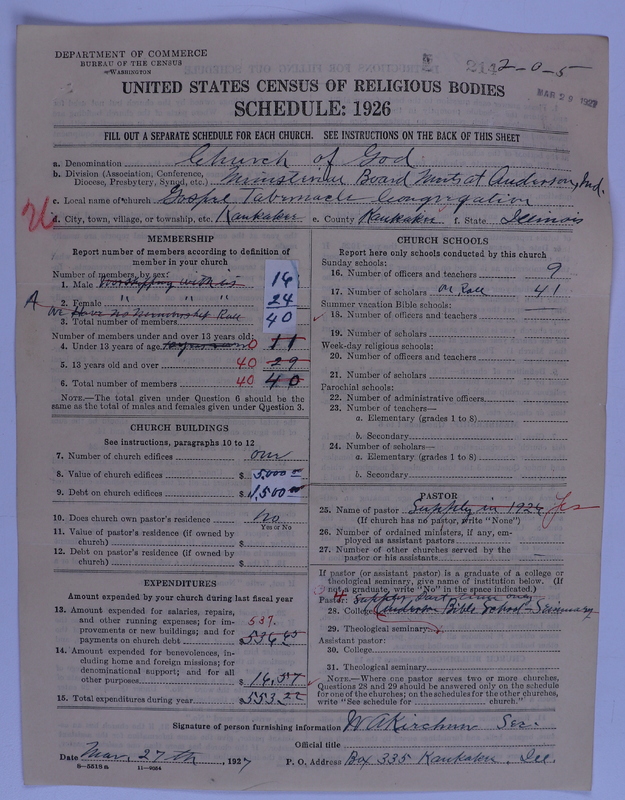 DEPARTMENT OF COMMERCE
BUREAU OF THE CENSUS
WASHINGTON
214
2-0-5
MAR 29 1927
UNITED STATES CENSUS OF RELIGIOUS BODIES
SCHEDULE: 1926
FILL OUT A SEPARATE SCHEDULE FOR EACH CHURCH. SEE INSTRUCTIONS ON THE BACK OF THIS SHEET
a. Denomination Church of God
b. Division (Association, Conference, Diocese, Presbytery, Synod, etc.) Board at Anderson, Ind.
c. Local name of church Gospel Tabernacle Congregation
d. City, town, village, or township, etc. Kankakee e. County Kankakee f. State Illinois
MEMBERSHIP
Report number of members according to definition of member in your church
Number of members, by sex:
1. Male Worshipping with us 16
2. Female " " " 24
A
or Have no Membership Roll
3. Total number of members 40
Number of members under and over 13 years old:
4. Under 13 years of age 0 11
5. 13 years old and over 40 29
6. Total number of members 40 40
NOTE.—The total given under Question 6 should be the same as the total of males and females given under Question 3.
CHURCH BUILDINGS
See instructions, paragraphs 10 to 12
7. Number of church edifices one
8. Value of church edifices $ 5,000 00
9. Debt on church edifices $ 1,500 00
10. Does church own pastor's residence No
Yes or No
11. Value of pastor's residence (if owned by church) $
12. Debt on pastor's residence (if owned by church) $
EXPENDITURES
Amount expended by your church during last fiscal year
13. Amount expended for salaries, repairs, and other running expenses; for improvements or new buildings; and for payments on church debt 537. $ 536.65
14. Amount expended for benevolences, including home and foreign missions; for denominational support; and for all other purposes $ 16.57
15. Total expenditures during year $ 553.22
CHURCH SCHOOLS
Report here only schools conducted by this church
Sunday schools:
16. Number of officers and teachers 9
17. Number of scholars on Roll 41
Summer vacation Bible schools:
18. Number of officers and teachers
19. Number of scholars
Week-day religious schools:
20. Number of officers and teachers
21. Number of scholars
Parochial schools:
22. Number of administrative officers
23. Number of teachers—
a. Elementary (grades 1 to 8)
b. Secondary
24. Number of scholars—
a. Elementary (grades 1 to 8)
b. Secondary
PASTOR
25. Name of pastor Supply in 1926 Yes
(If church has no pastor, write "None")
26. Number of ordained ministers, if any, employed as assistant pastors
27. Number of other churches served by the pastor or his assistants
If pastor (or assistant pastor) is a graduate of a college or theological seminary, give name of institution below. (If not a graduate, write "No" in the space indicated.)
Pastor: Supply Part time only
28. College Anderson Bible School - Seminary
29. Theological seminary
Assistant pastor:
30. College
31. Theological seminary
NOTE.—Where one pastor serves two or more churches, Questions 28 and 29 should be answered only on the schedule for one of the churches; on the schedules for the other churches, write "See schedule for church."
Signature of person furnishing information
Official title
Date Mar. 27th, 1927
P. O. Address Box 335 Kankakee, Ill.
8—5518a 11—9064